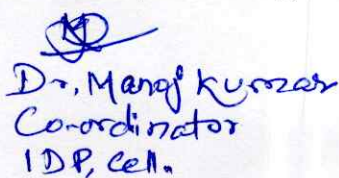 Dr. Manoj Kumar
Co-ordinator
IDP, Cell.